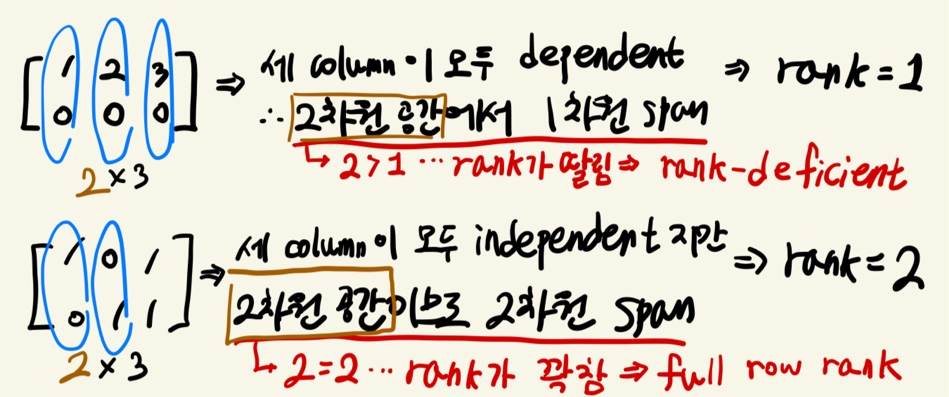 [1 2 3 ⇒ 세 column이 모두 dependent ⇒ rank = 1
0 0 0] ∴ 2차원 공간에서 1차원 span
2×3 ↳ 2>1 … rank가 딸림 ⇒ rank-deficient
[1 0 1 ⇒ 세 column이 모두 independent 지만 ⇒ rank = 2
0 1 1] 2차원 공간이므로 2차원 span
2×3 ↳ 2=2 … rank가 꽉참 ⇒ full row rank